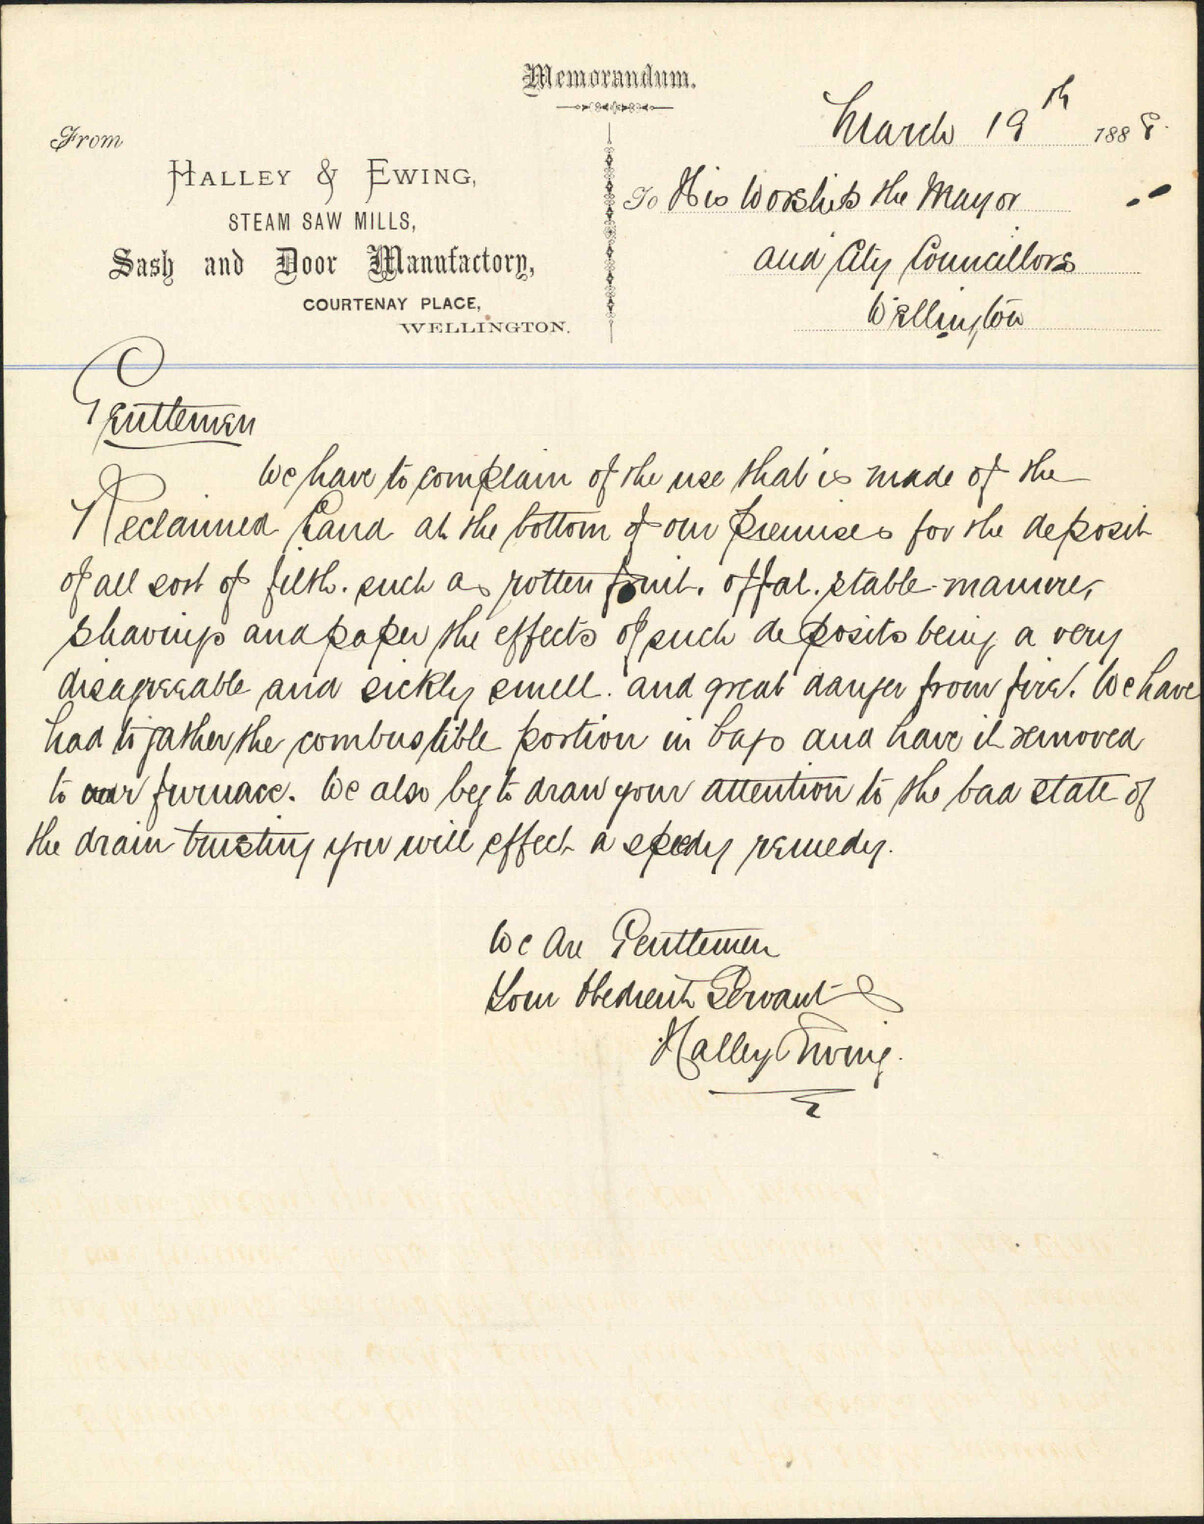 Memorandum.
March 19th 1888.
From
HALLEY & EWING,
STEAM SAW MILLS,
Sash and Door Manufactory,
COURTENAY PLACE,
WELLINGTON.
To His Worship the Mayor
and City Councillors
Wellington
Gentlemen
We have to complain of the use that is made of the
Reclaimed Land at the bottom of our premises for the deposit
of all sort of filth. such as rotten fruit. offal. stable manure,
shavings and paper the effects of such deposits being a very
disagreeable and sickly smell. and great danger from fire. We have
had to gather the combustible portion in bags and have it removed
to our furnace. We also beg to draw your attention to the bad state of
the drain trusting you will effect a speedy remedy.
We Are Gentlemen
Your Obedient Servants
Halley Ewing.